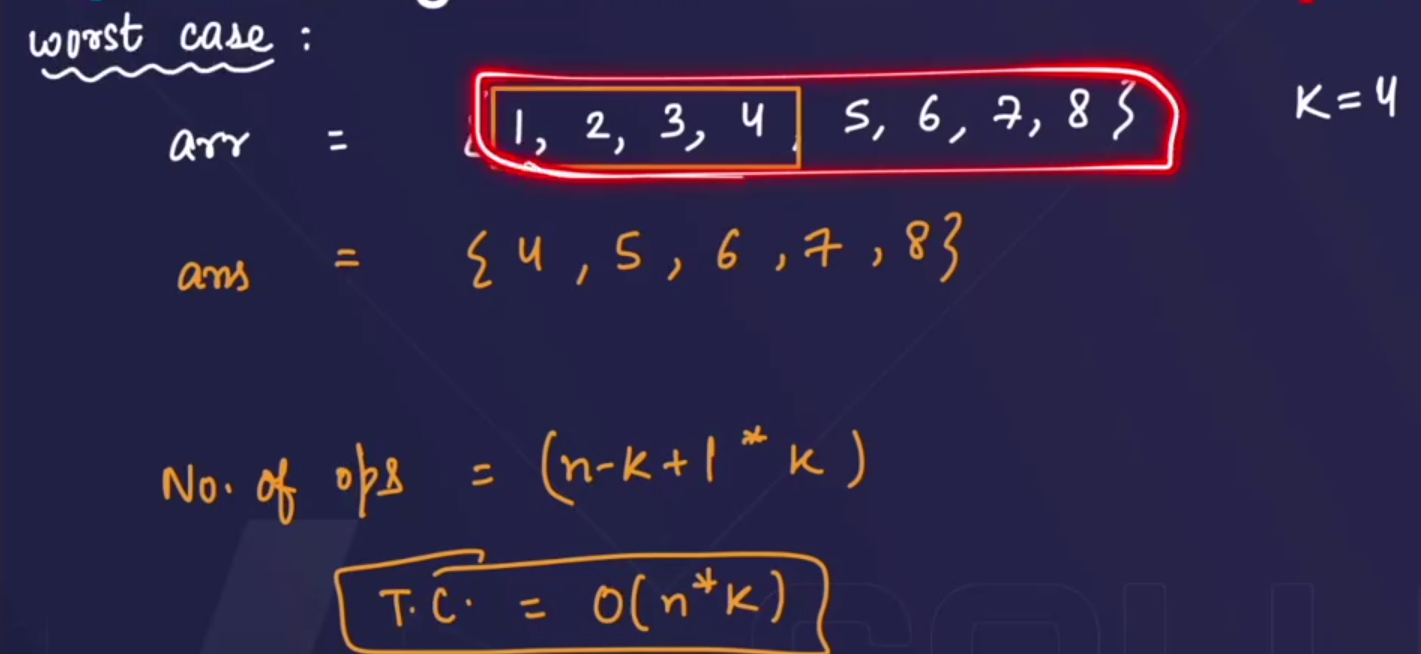 worst case :
arr = { 1, 2, 3, 4, 5, 6, 7, 8 } K=4
ans = { 4, 5, 6, 7, 8 }
No. of ops = (n-k+1 * k)
T.C. = O(n*k)